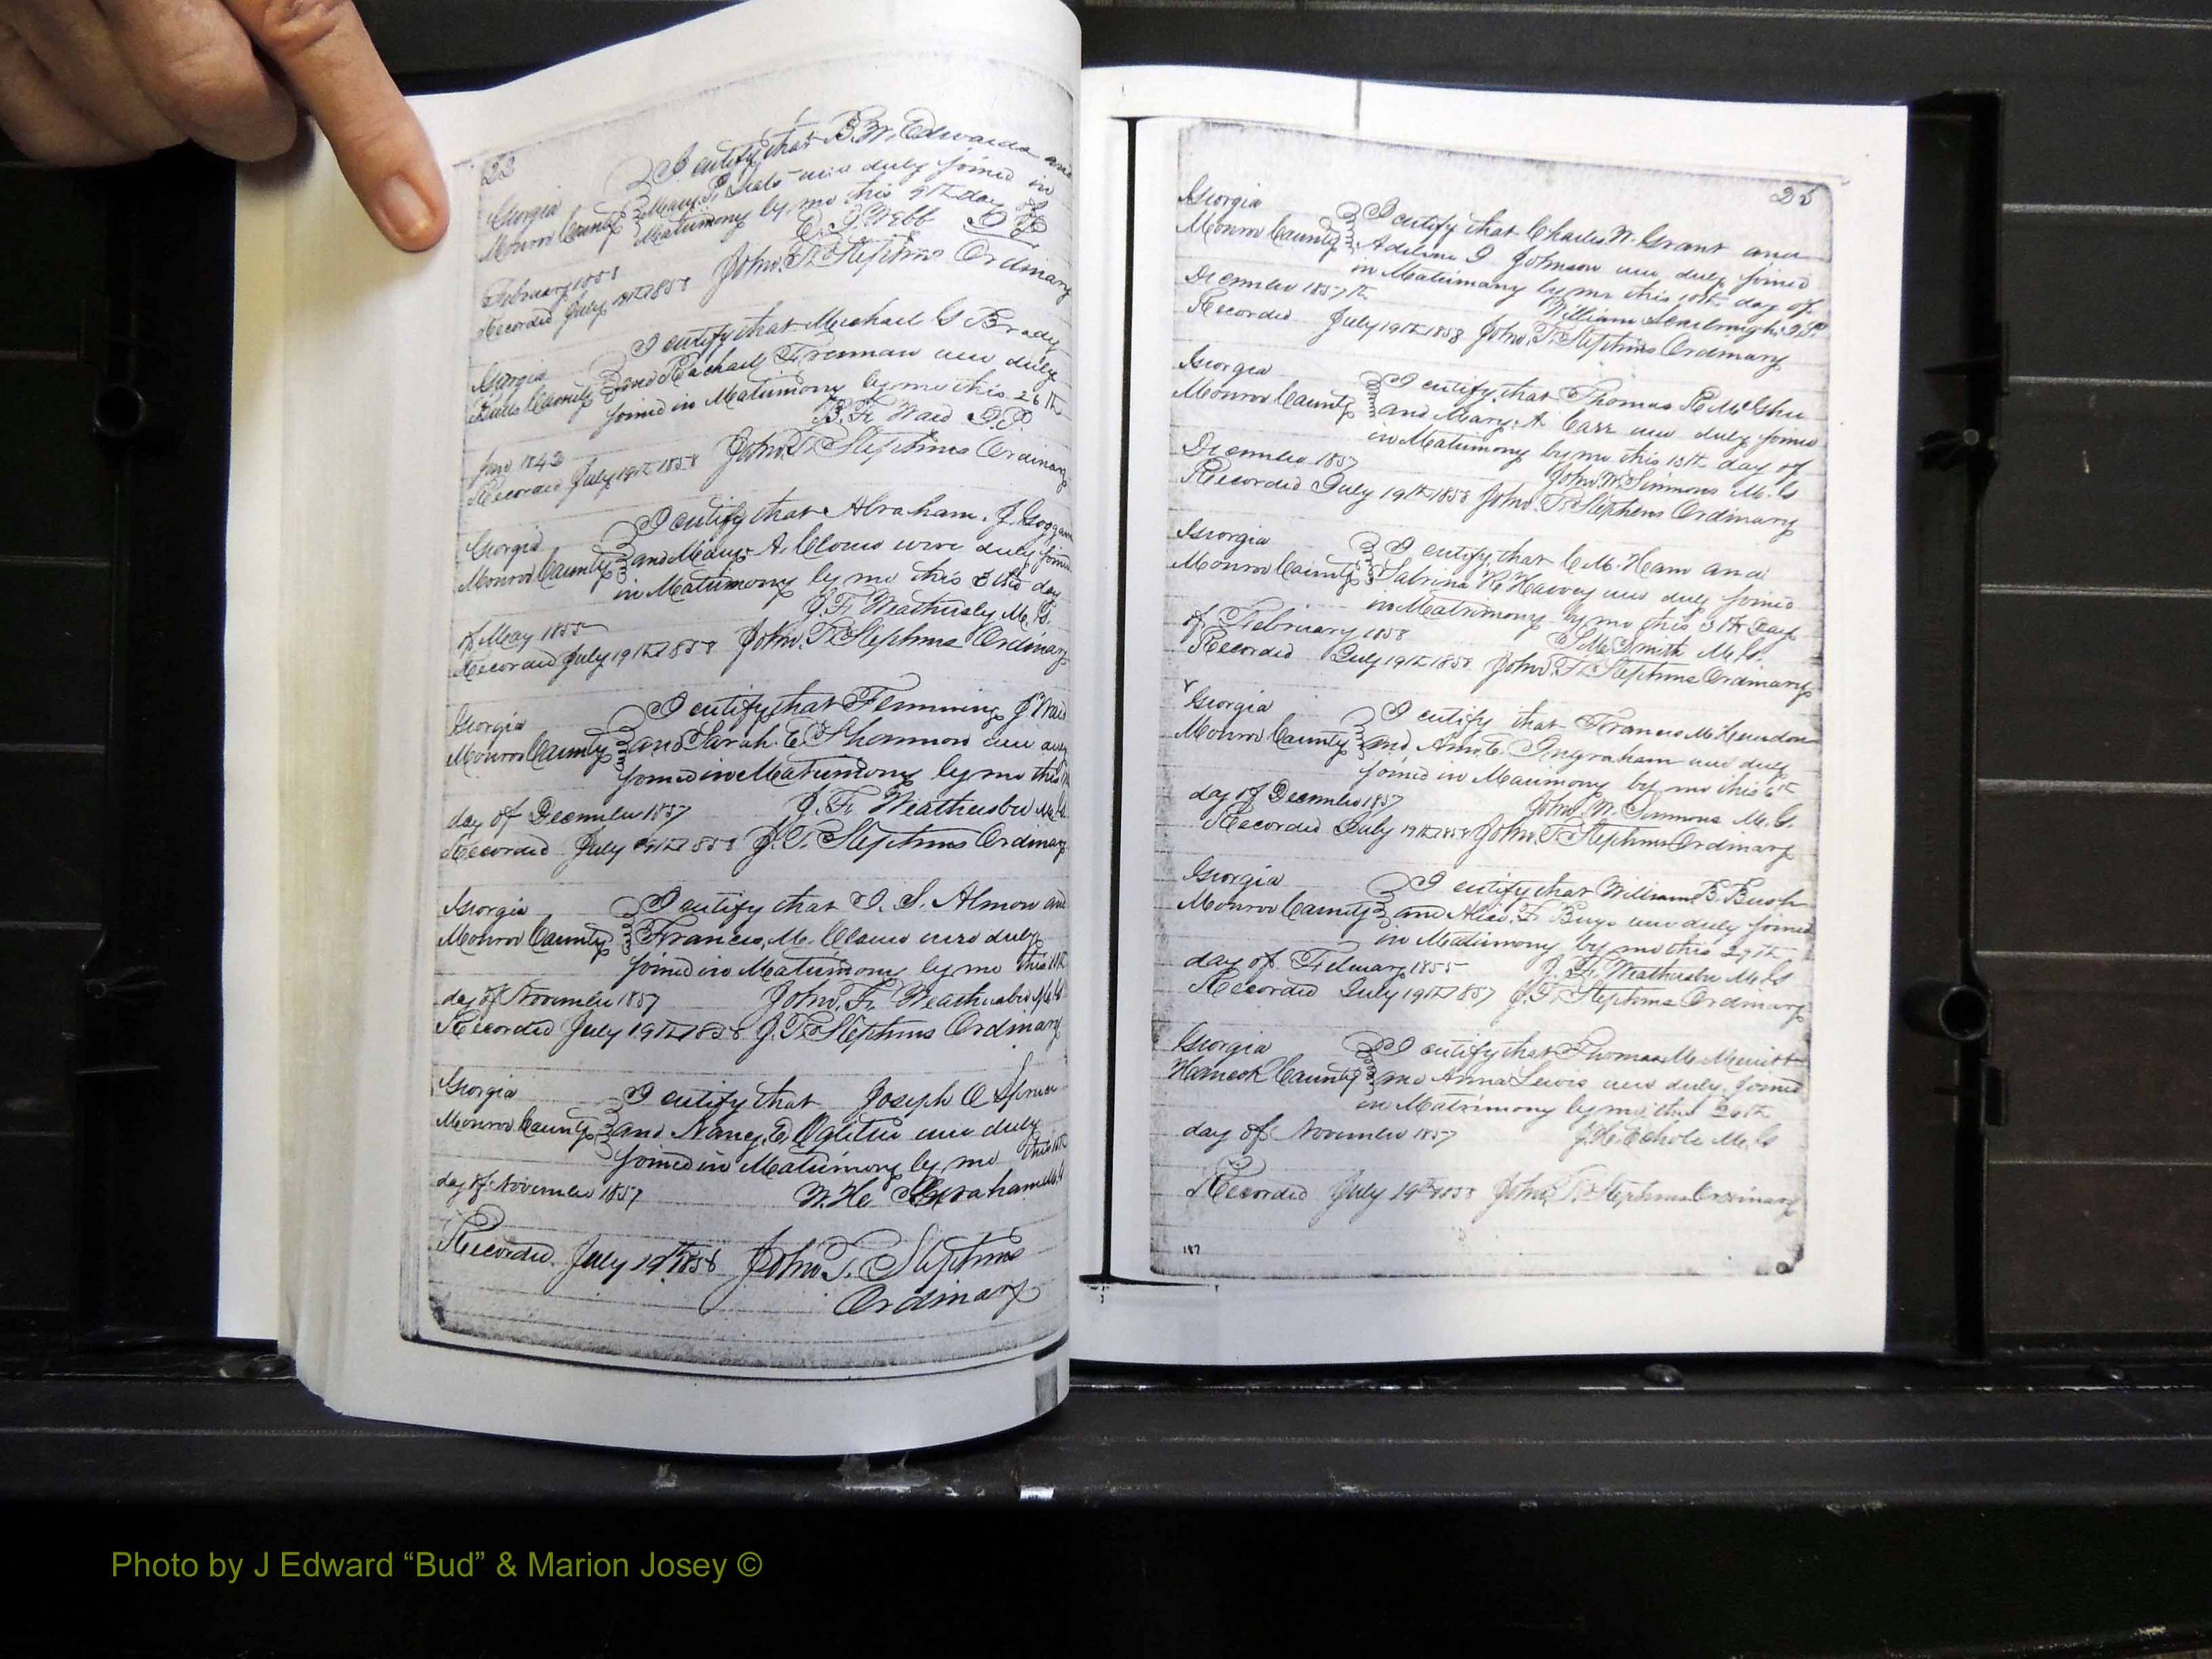 22
I certify that B. W. Edwards and
Georgia
Monroe County Mary were duly joined in
Matrimony by me this 9th day of
February 1858 Webb J P
Recorded July 19th 1858 John T Stephens Ordinary
I certify that Michael G Brady
Georgia
Butts County and Rachael Freeman were duly
joined in Matrimony by me this 26th
Jan 1842 B. F. Ward J.P.
Recorded July 19th 1858 John T Stephens Ordinary
I certify that Abraham. J. Goggans
Georgia
Monroe County and Mary A. Clows were duly joined
in Matrimony by me this day
of May 1855 J. F. Weathersby M. G.
Recorded July 19th 1858 John T. Stephens Ordinary
I certify that Flemming J Ward
Georgia
Monroe County and Sarah. E. Shannon were duly
joined in Matrimony by me this
day of December 1857 J. F. Weathersbee M. G.
Recorded July 19th 1858 J. T. Stephens Ordinary
Georgia I certify that I. S. Almon and
Monroe County Francis, M. Clows were duly
joined in Matrimony by me this
day of November 1857 John, F. Weathersbee M. G.
Recorded July 19th 1858 J. T. Stephens Ordinary
Georgia I certify that Joseph O
Monroe County and Nancy, E were duly
joined in Matrimony by me this
day of November 1857 Graham M. G
Recorded. July 19th 1858 John T. Stephens
Ordinary
Georgia I certify that Charles W. Grant and
Monroe County Adeline I Johnson were duly joined
in Matrimony by me this 10th day of
December 1857th William J P
Recorded July 19th 1858 John T. Stephens Ordinary
Georgia I certify that Thomas R McGhee
Monroe County and Mary. A Carr were duly joined
in Matrimony by me this 15th day of
December 1857 John. W. Simmons M. G
Recorded July 19th 1858 John T. Stephens Ordinary
Georgia I certify, that C. M. Ham and
Monroe County Sabrina R. Harvey were duly joined
in Matrimony by me this day
of February 1858 Smith M. G.
Recorded July 19th 1858 John T. Stephens Ordinary
Georgia I certify that Francis M. Herndon
Monroe County and Ann E. Ingraham were duly
joined in Matrimony by me this 6th
day of December 1857 John, W. Simmons M. G.
Recorded July 19th 1858 John. T. Stephens Ordinary
Georgia I certify that William B. Bush
Monroe County and F were duly joined
in Matrimony by me this
day of February 1855 J. F. Weathersbee M. G
Recorded July 19th 1857 J. T. Stephens Ordinary
Georgia I certify that Thomas M. Merritt
Hancock County and Anna Lewis were duly joined
in Matrimony by me this
day of November 1857 Echols M. G
Recorded July 19th 1858 John T. Stephens Ordinary
187
Photo by J Edward “Bud” & Marion Josey ©